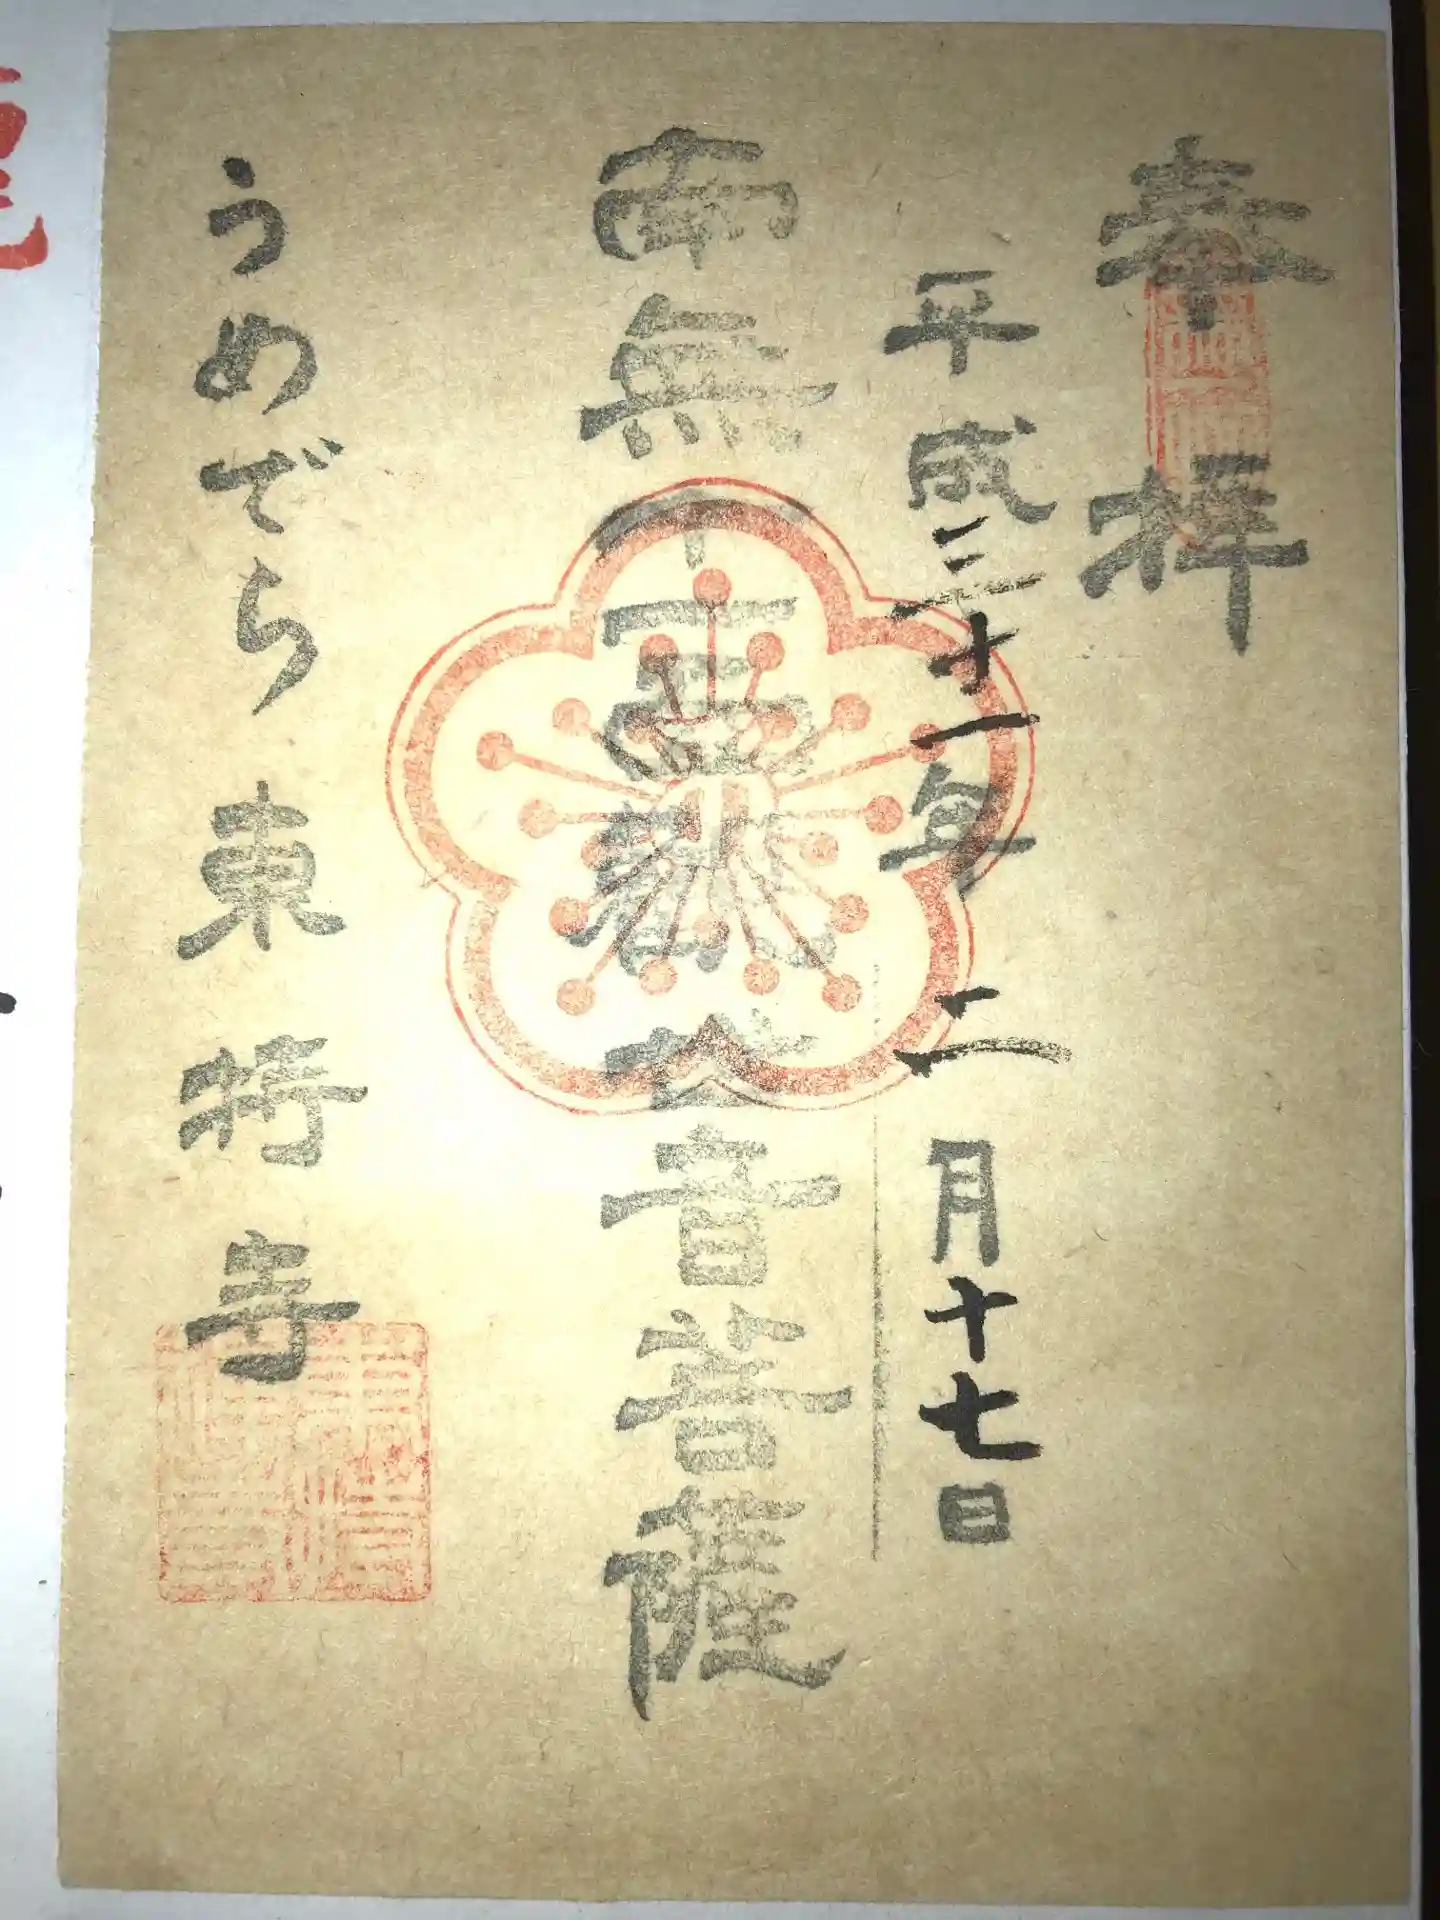 奉拝
平成三十一年二月十七日
南無十一面觀世音菩薩
うめでら東持寺